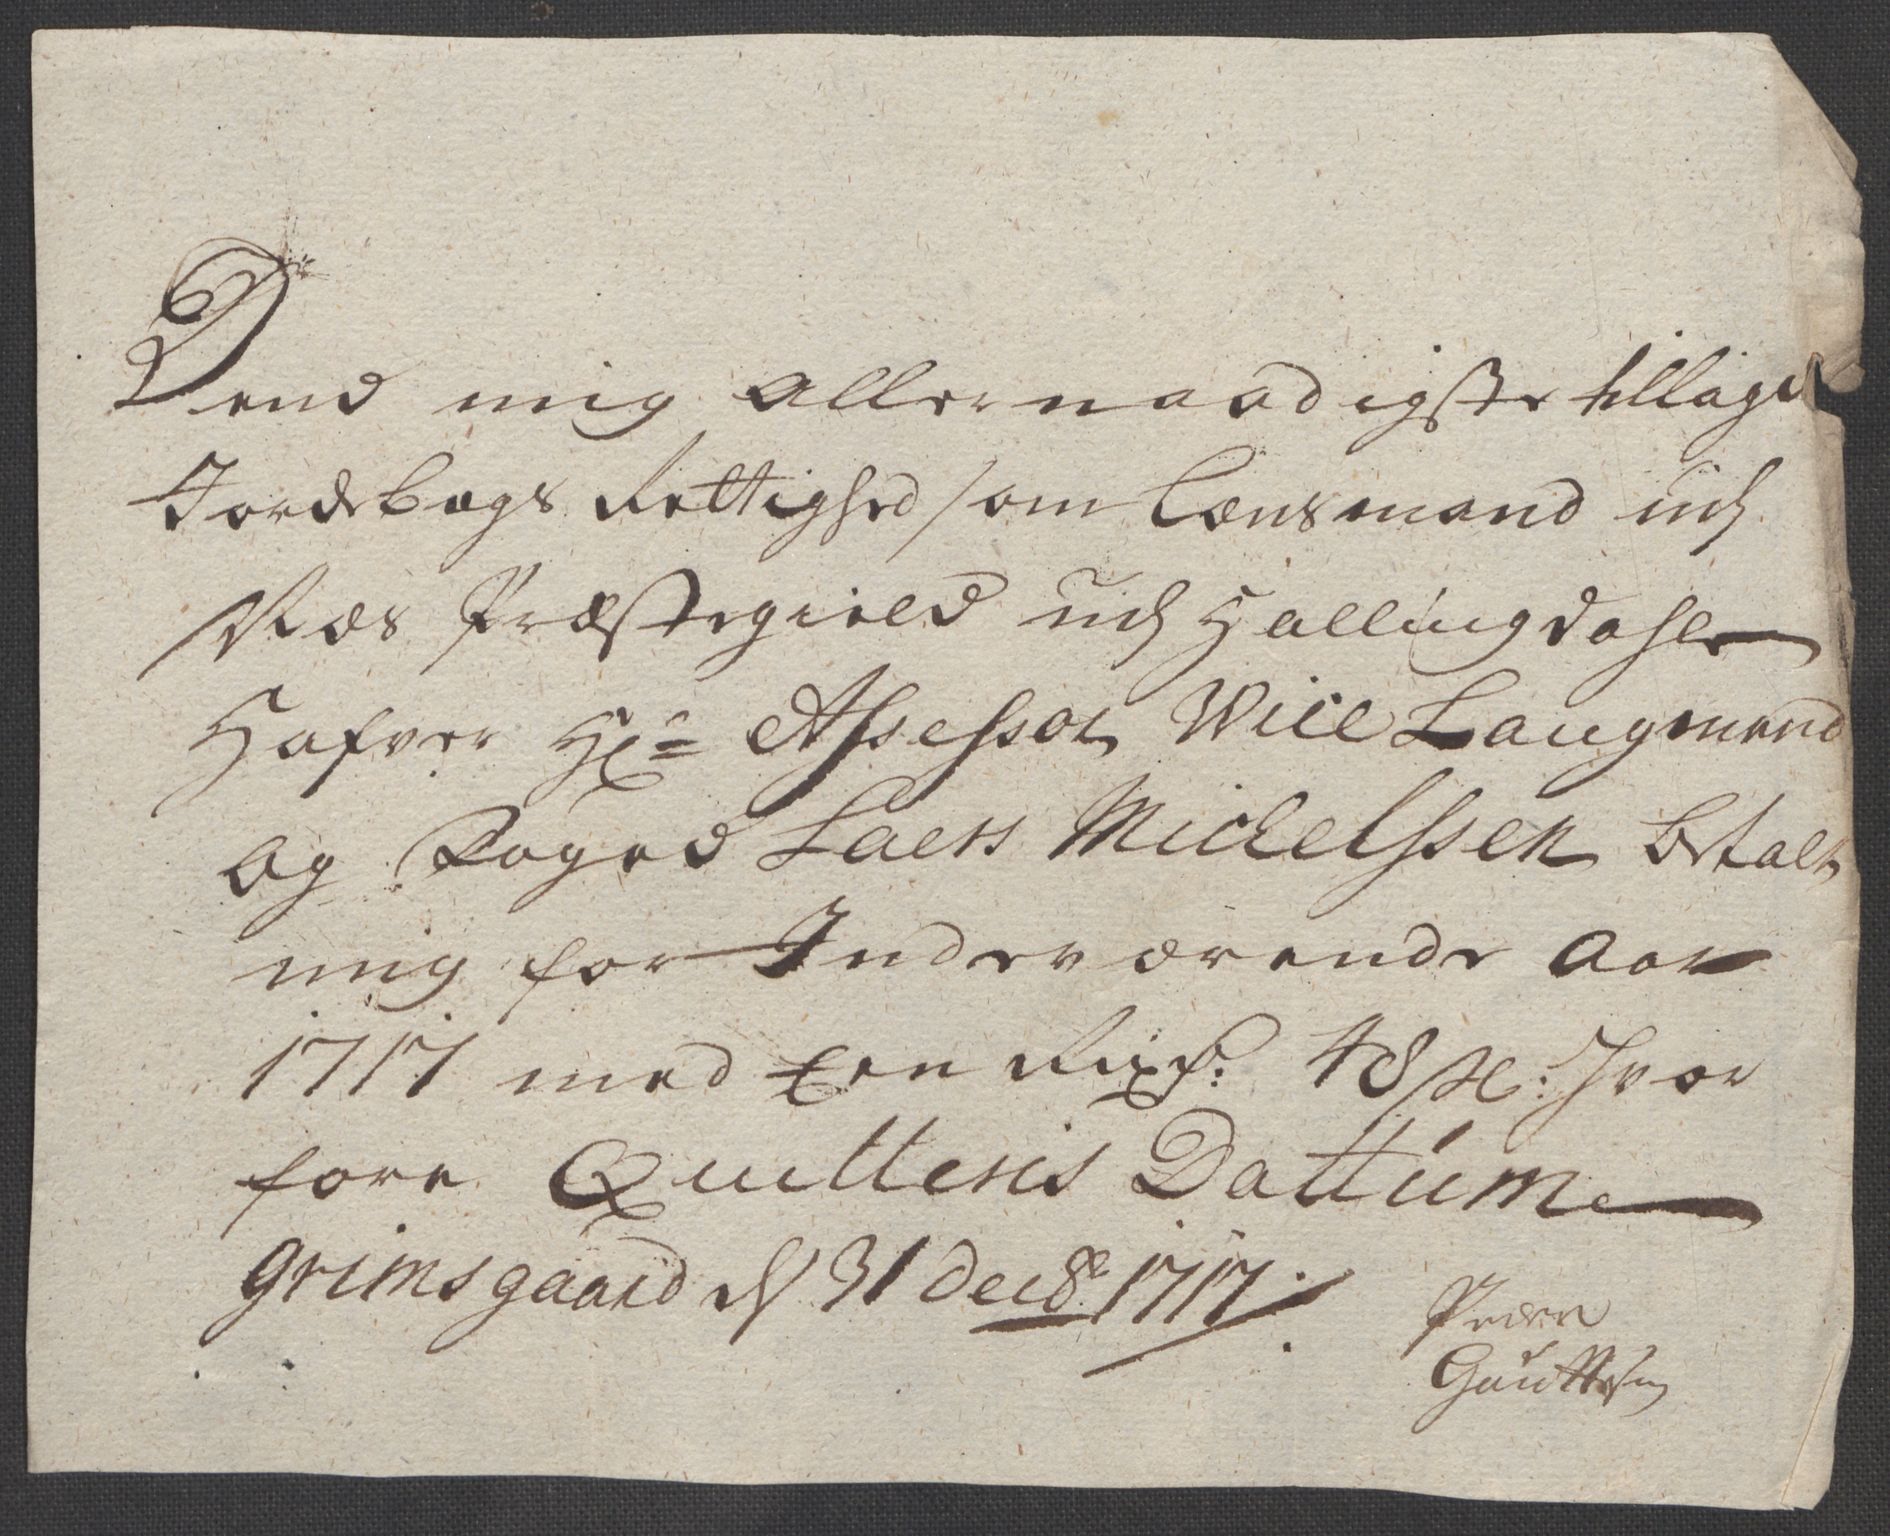 Dend mig allernaadigste tillagde
Jordebogs Rettighed som Lænsmand udj
Næs Præstegield udj Hallingdahl
Hafver Hr: Assessor Vice Laugmand
og Foged Laers Michelssen betalt
mig for Inderværende Aar
1717 med Een Rixdr: 48 sk: hvor
fore Quitteris Dattum
Grimsgaard d 31 Decbr 1717
Peder
Guuttesen